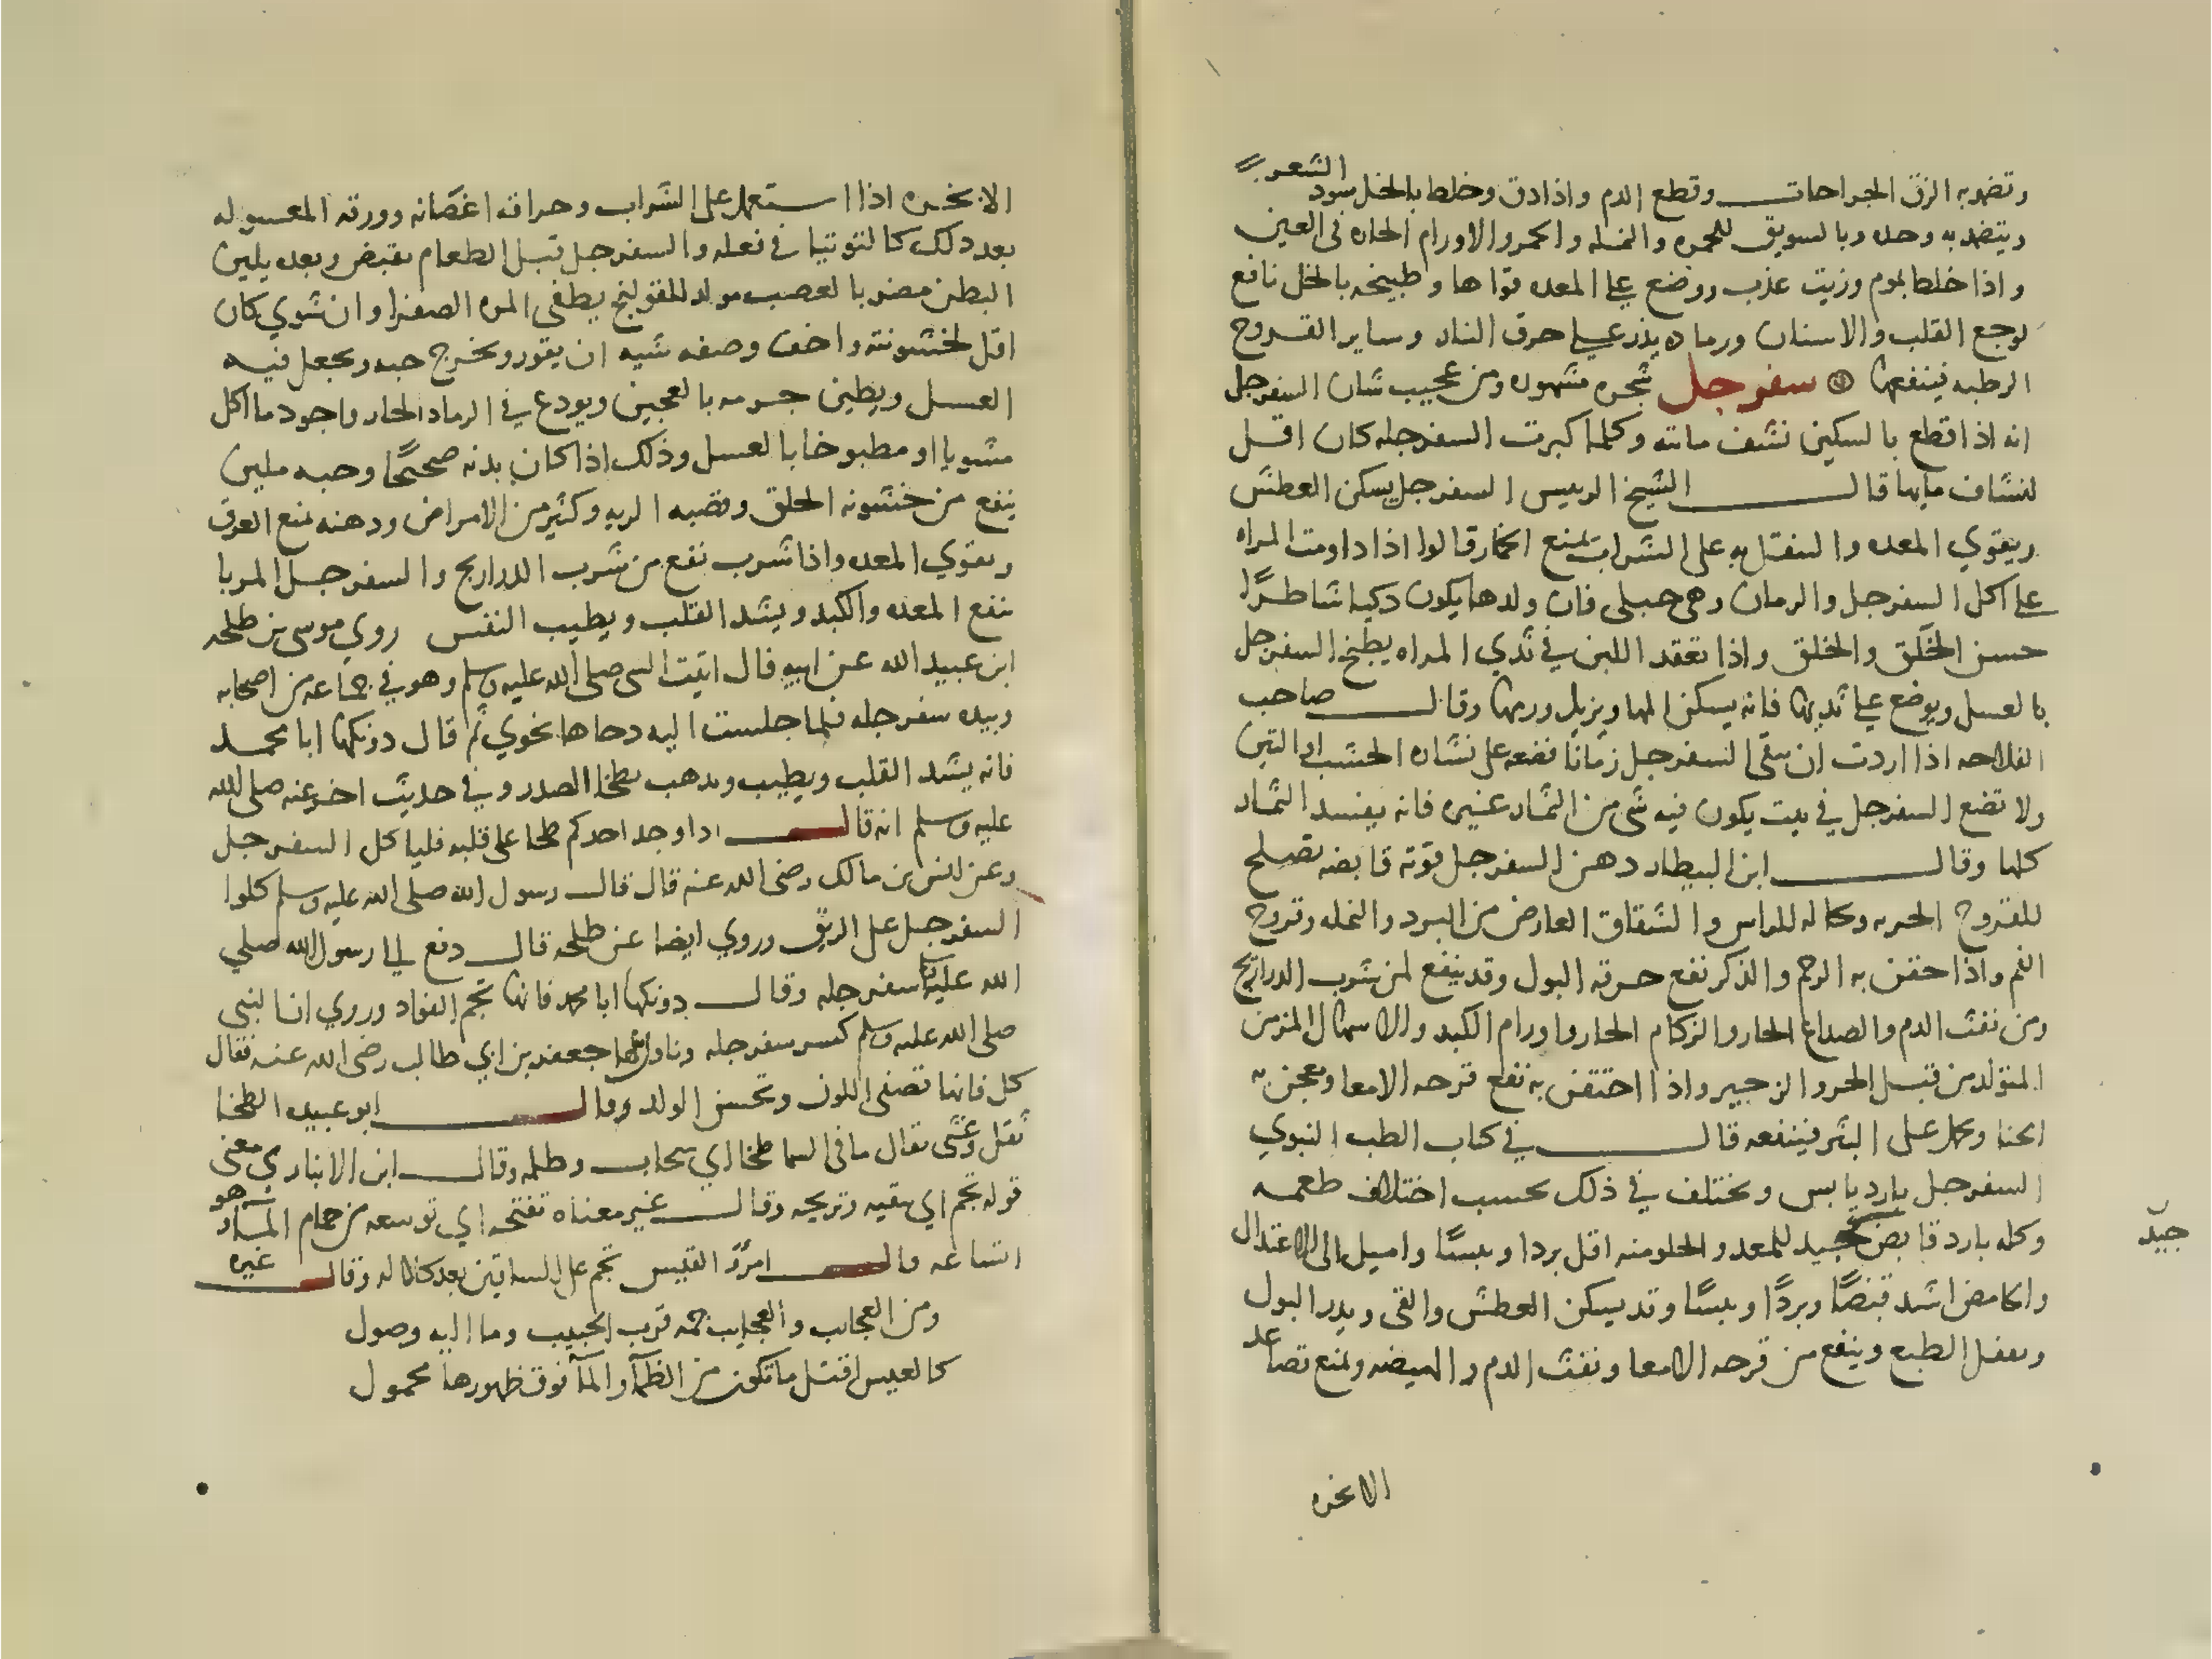 وتضمد به الزق الجراحات وقطع الدم واذا دق وخلط بالخل سود الشعر
ويتضمد به وحده وبالسويق للجمره والنمله والحمر والاورام الحاره في العين
واذا خلط بموم وزيت عذب ووضع على المعده قواها وطبيخه بالخل نافع
لوجع القلب والاسنان ورماده يذر على حرق النار وساير القروح
الرطبه فينفعها سفرجل شجره مشهوره ومن عجيب شان السفرجل
انه اذا قطع بالسكين نشف مائه وكلما كبرت السفرجله كان اقل
لنشاف مايها قال الشيخ الرييس السفرجل يسكن العطش
ويقوي المعده والنقل به على الشراب يمنع الخمار قالوا اذا داومت المراه
على اكل السفرجل والرمان وهي حبلى فان ولدها يكون ذكيا شاطرًا
حسن الخَلق والخلق واذا تعقد اللبن في ثدي المراه يطبخ السفرجل
بالعسل ويوضع على ثديها فانه يسكن المها ويزيل ورمها وقال صاحب
الفلاحه اذا اردت ان يبقى السفرجل زمانًا فضعه على نشاره الخشب او التبن
ولا تضع السفرجل في بيت يكون فيه شي من الثمار غيره فانه يفسد الثمار
كلها وقال ابن البيطار دهن السفرجل قوته قابضه تصلح
للقروح الجربه وكاله للراس والشقاق العارض من البرد والنمله وقروح
الفم واذا حقن به الرحم والذكر نفع حرقه البول وقد ينفع لمن شرب الدراريح
ومن نفث الدم والصداع الحار والزكام الحار واورام الكبد والاسهال المزمن
المتولد من قبل الحر والزحير واذا احتقن به نفع قرحه الامعا ويعجن به
الحنا ويحمل على البثر فينفعه قال في كتاب الطب النبوي
السفرجل بارد يابس ويختلف في ذلك بحسب اختلاف طعمه
وكله بارد قابض جيد للمعده والحلو منه اقل بردا ويبسًا واميل الى الاعتدال
جيّد
والحامض اشد قبضًا وبردًا ويبسًا وقد يسكن العطش والقي ويدر البول
ويعقل الطبع وينفع من قرحه الامعا ونفث الدم والهيضه ويمنع تصاعد
الابخره
الابخره اذا استعمل على الشراب وحراقه اغصانه وورقه المغسوله
بعد ذلك كالتوتيا في فعله والسفرجل قبل الطعام يقبض وبعده يلين
البطن مضر بالعصب مولد للقولنج يطفي المره الصفرا وان شوي كان
اقل لخشونته واخف وصفه شيه ان يقور ويخرج حبه ويجعل فيه
العسل ويطين جرمه بالعجين ويودع في الرماد الحار واجود ما اكل
مشويا او مطبوخا بالعسل وذلك اذا كان بدنه صحيحًا وحبه ملين
ينفع من خشونه الحلق وقصبه الريه وكثير من الامراض ودهنه يمنع العرق
ويقوي المعده واذا شرب نفع من شرب الدراريح والسفرجل المربا
ينفع المعده والكبد ويشد القلب ويطيب النفس روي موسى بن طلحه
ابن عبيد الله عن ابيه قال اتيت النبي صلى الله عليه وسلم وهو في جماعه من اصحابه
وبيده سفرجله فلما جلست اليه دحاها نحوي ثم قال دونكها ابا محمد
فانه يشد القلب ويطيب ويذهب بطخا الصدر وفي حديث اخر عنه صلى الله
عليه وسلم انه قال اذا وجد احدكم طخا على قلبه فليا كل السفرجل
وعن انس بن مالك رضي الله عنه قال قال رسول الله صلى الله عليه وسلم كلوا
السفرجل على الريق وروي ايضا عن طلحه قال دفع الي رسول الله صلي
الله عليه سفرجله وقال دونكها ابا محمد فانها تجم الفواد وروي ان النبي
صلى الله عليه وسلم كسر سفرجله وناولها جعفر بن ابي طالب رضي الله عنه فقال
كل فانها تصفي اللون وتحسن الولد وقال ابو عبيد الطخا
ثقل وغشى يقال ما في السما طخا اي سحاب وظلمه وقال ابن الانباري معنى
قوله تجم اي ينقيه وتريحه وقال غيره معناه تفتحه اي توسعه من جمام الماء هو
اتساعه قال امرؤ القيس تجم على الساقين بعد كلاله وقال غيره
ومن العجايب والعجايب جمه قرب الحبيب وما اليه وصول
كالعيس اقتل ما تكون من الظمآ والمآ فوق ظهورها محمول